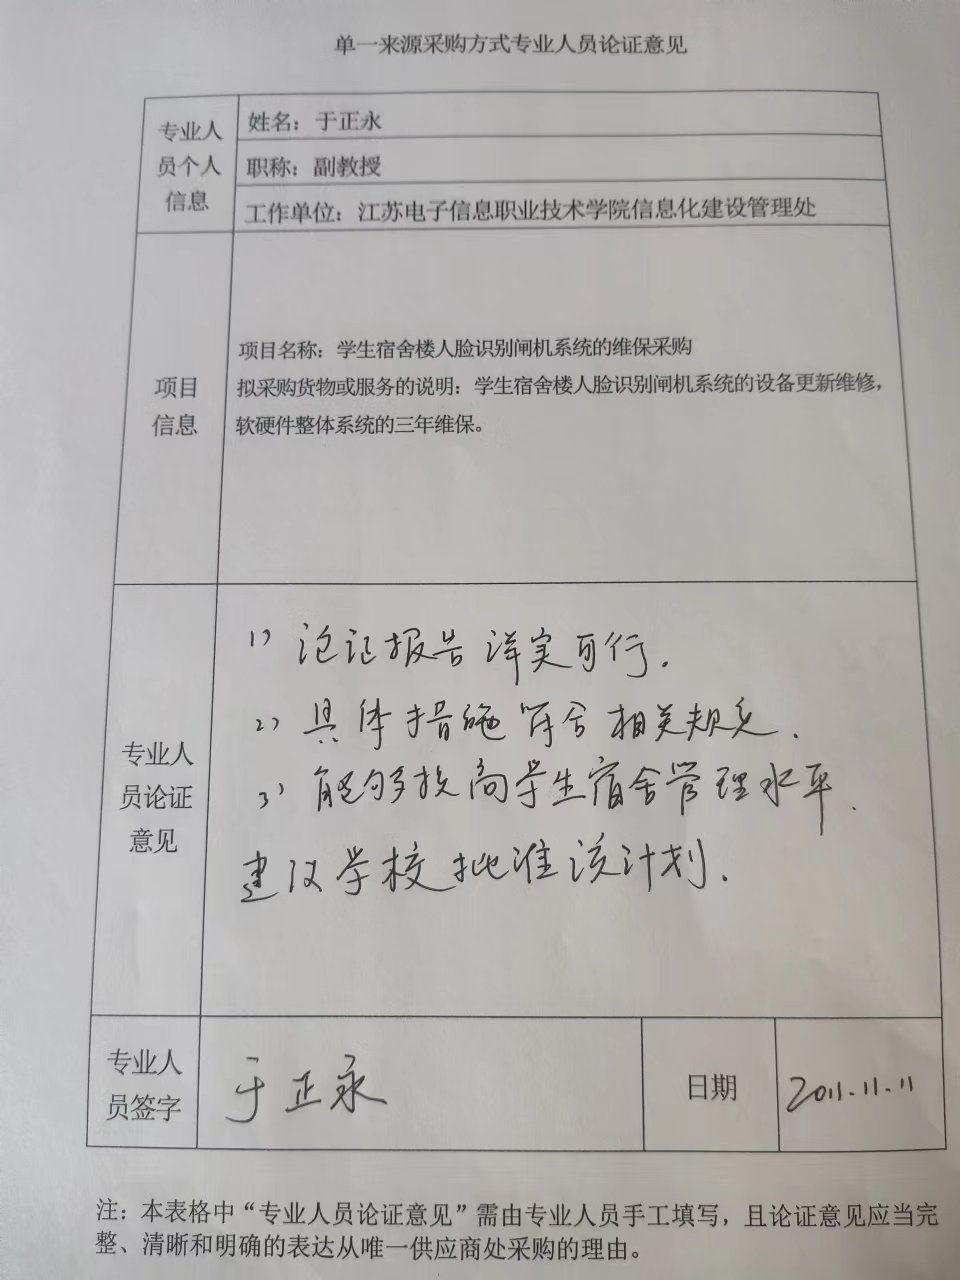 单一来源采购方式专业人员论证意见
专业人
员个人
信息
姓名：于正永
职称：副教授
工作单位：江苏电子信息职业技术学院信息化建设管理处
项目
信息
项目名称：学生宿舍楼人脸识别闸机系统的维保采购
拟采购货物或服务的说明：学生宿舍楼人脸识别闸机系统的设备更新维修，
软硬件整体系统的三年维保。
专业人
员论证
意见
1）论证报告详实可行.
2）具体措施符合相关规定.
3）能够提高学生宿舍管理水平.
建议学校批准该计划.
专业人
员签字
于正永
日期
2011.11.11
注：本表格中“专业人员论证意见”需由专业人员手工填写，且论证意见应当完
整、清晰和明确的表达从唯一供应商处采购的理由。